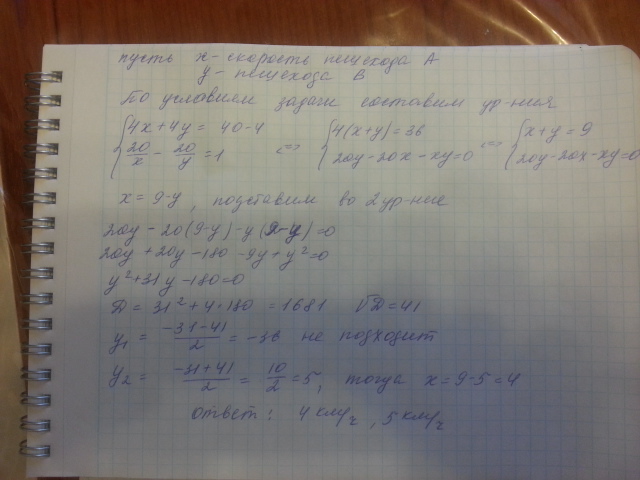 пусть x - скорость пешехода A
y - пешехода B
По условием задачи составим ур-ния
{4x+4y = 40-4 {4(x+y)=36 {x+y=9
20/x - 20/y = 1 <=> 20y-20x-xy=0 <=> 20y-20x-xy=0
x=9-y, подставим во 2 ур-ние
20y - 20(9-y) - y(9-y)=0
20y + 20y - 180 - 9y + y²=0
y²+31y-180=0
D = 31²+4·180 = 1681 √D=41
y₁ = (-31-41)/2 = -36 не подходит
y₂ = (-31+41)/2 = 10/2 = 5, тогда x=9-5=4
ответ: 4 км/ч, 5 км/ч